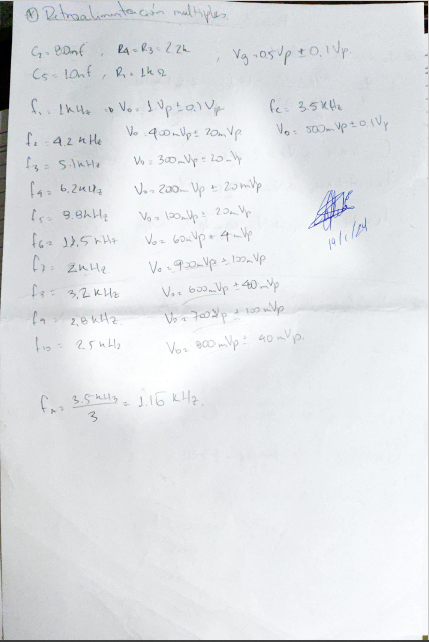 Retroalimentación multiples.
C2 = 80nf , R4=R3=22k , Vg=0.5Vp ± 0.1Vp
C5=10nf , R1=1kΩ
f1=1kHz Vo=1Vp±0.1Vp fc=3.5kHz
f2=4.2kHz Vo=400mVp±20mVp Vo=500mVp±0.1Vp
f3=5.1kHz Vo=300mVp±20mVp
f4=6.2kHz Vo=200mVp±20mVp
f5=8.8kHz Vo=100mVp±20mVp
f6=11,5kHz Vo=60mVp±4mVp
f7=2kHz Vo=900mVp±100mVp
f8=3,2kHz Vo=600mVp±40mVp
19/1/24
f9=2,8kHz Vo=700Vp±100mVp
f10=25kHz Vo=800mVp±40mVp.
fn=3.5kHz/3=1.16kHz.